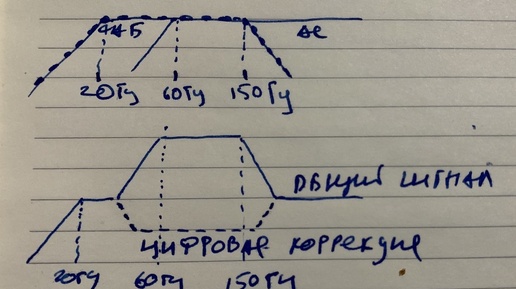 20Гц 60Гц 150Гц
ОБЩИЙ СИГНАЛ
ЦИФРОВАЯ КОРРЕКЦИЯ
20Гц 60Гц 150Гц